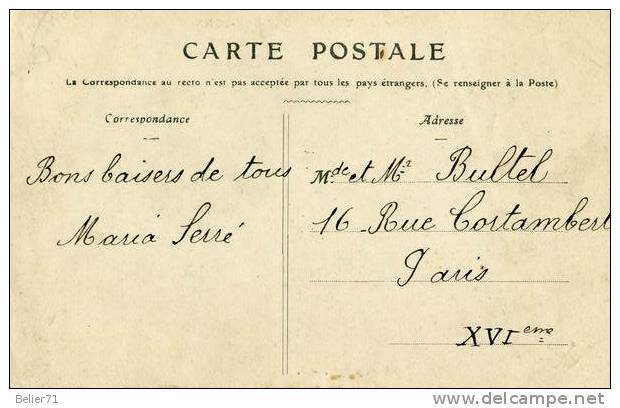 CARTE POSTALE
La Correspondance au recto n'est pas acceptée par tous les pays étrangers. (Se renseigner à la Poste)
Correspondance
Bons baisers de tous
Maria Serré
Adresse
Mde et Mr Bultel
16 Rue Cortambert
Paris
XVIeme
Belier71
www.delcampe.net